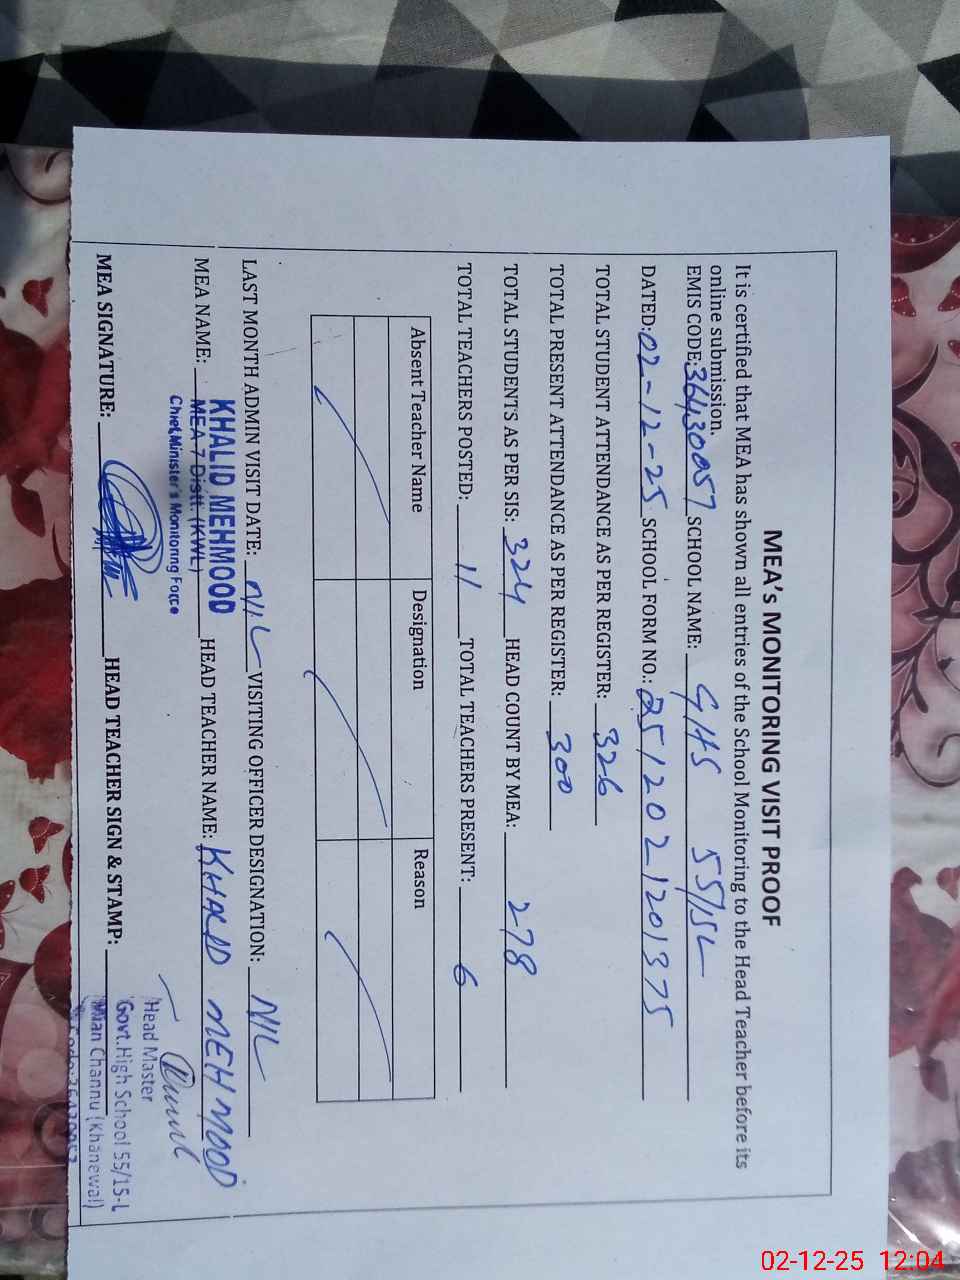 MEA's MONITORING VISIT PROOF
It is certified that MEA has shown all entries of the School Monitoring to the Head Teacher before its
online submission.
EMIS CODE: 36430057 SCHOOL NAME: GHS 55/15L
DATED: 02-12-25 SCHOOL FORM NO.: 2512021201375
TOTAL STUDENT ATTENDANCE AS PER REGISTER: 326
TOTAL PRESENT ATTENDANCE AS PER REGISTER: 300
TOTAL STUDENTS AS PER SIS: 324 HEAD COUNT BY MEA: 278
TOTAL TEACHERS POSTED: 11 TOTAL TEACHERS PRESENT: 6
Absent Teacher Name Designation Reason
LAST MONTH ADMIN VISIT DATE: NIL VISITING OFFICER DESIGNATION: NIL
MEA NAME: KHALID MEHMOOD HEAD TEACHER NAME: KHALID MEHMOOD
MEA 7 Distt. (KWL)
Chief Minister's Monitoring Force
MEA SIGNATURE: HEAD TEACHER SIGN & STAMP:
Head Master
Govt. High School 55/15-L
Mian Channu (Khanewal)
02-12-25 12:04